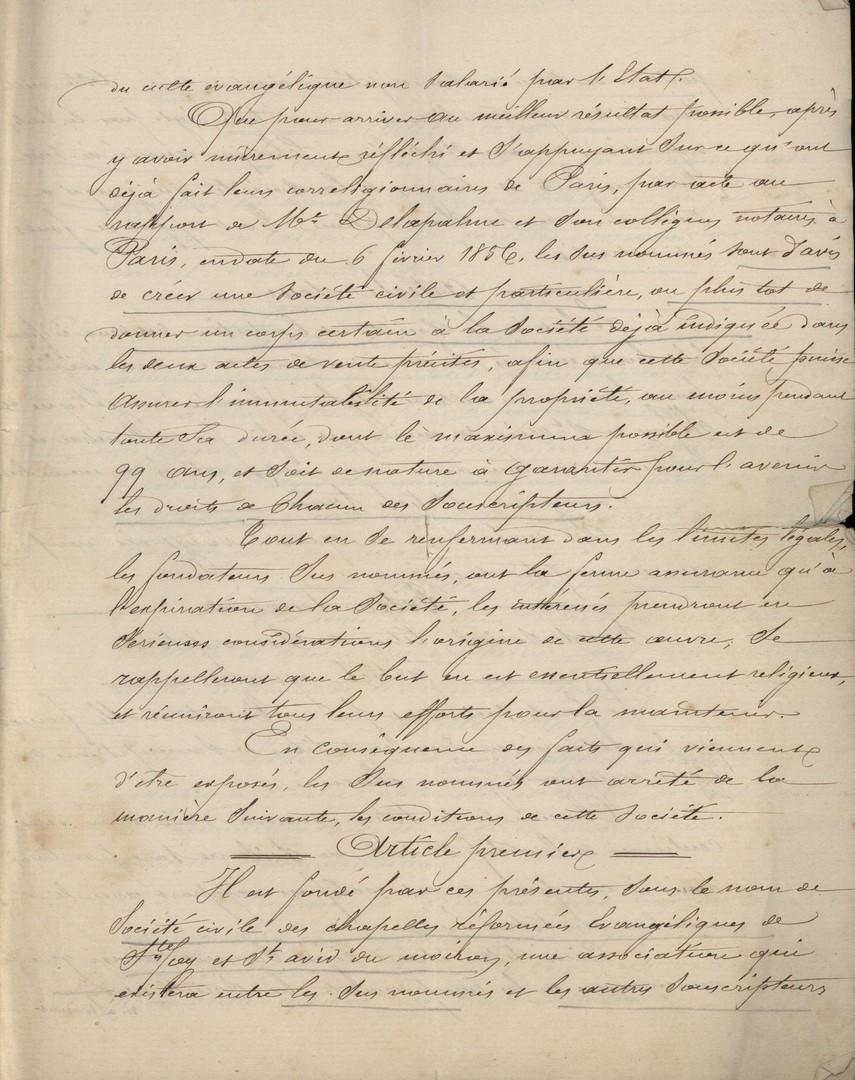 du culte évangélique non salarié par l'Etat.
Que pour arriver au meilleur résultat possible, après
y avoir mûrement réfléchi et s'appuyant sur ce qu'ont
déjà fait leurs correligionnaires de Paris, par acte au
rapport de Me. Delapalme et son collègues notaires à
Paris, en date du 6 février 1856, les sus nommés sont d'avis
de créer une Société civile et particulière, ou plus tot de
donner un corps certain à la Société déjà indiquée dans
les deux actes de vente précités, afin que cette Société, puisse
assurer l'immutabilité de la propriété, au moins pendant
toute sa durée, dont le maximum possible est de
99 ans, et soit de nature à garantir pour l'avenir
les droits de chacun des Souscripteurs.
Tout en se renfermant dans les limites légales,
les fondateurs sus nommés, ont la ferme assurance qu'à
l'expiration de la Société, les intéressés prendront en
serieuses considérations l'origine de cette œuvre, se
rappelleront que le but en est essentiellement religieux,
et réuniront tous leurs efforts pour la maintenir.
En conséquence des faits qui viennent
d'etre exposés, les sus nommés ont arrêté de la
manière suivante, les conditions de cette Société.
Article premier
Il est fondé par ces présentes, sous le nom de
Société civile des chapelles réformées Evangéliques de
Ste foy et St avid du moiron, une association qui
existera entre les sus nommés et les autres Souscripteurs